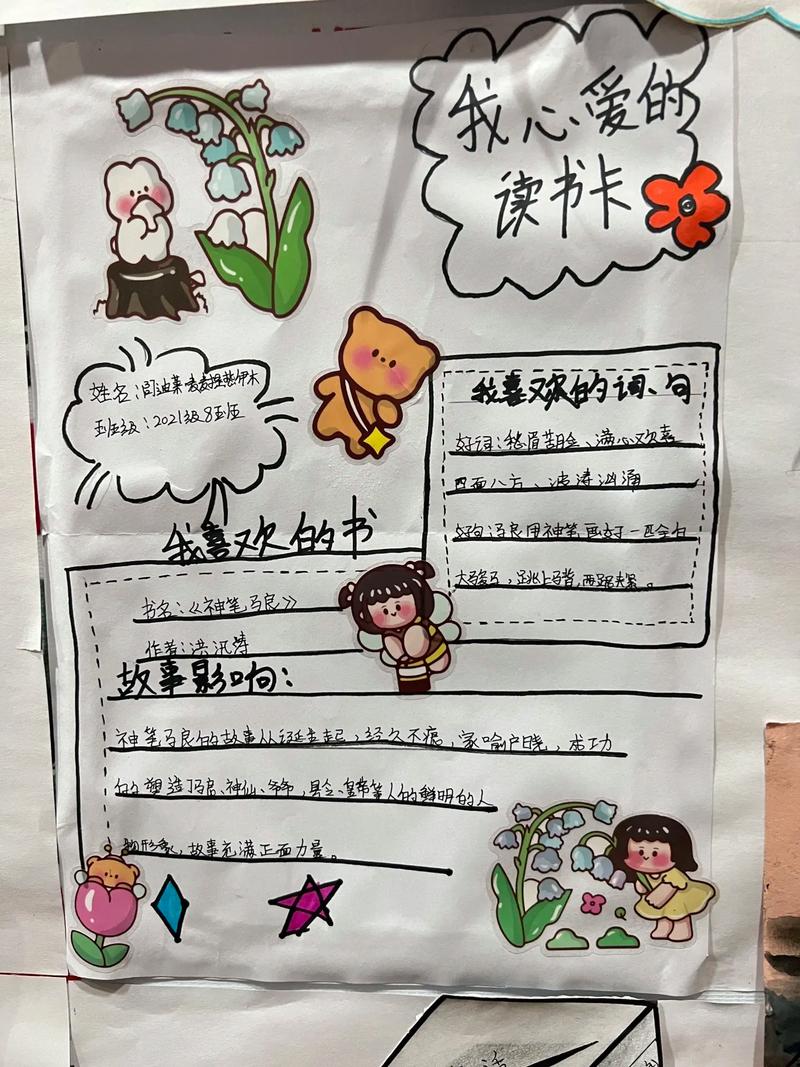 我心爱的
读书卡
姓名:阎迪莱
班级:2021级8班
我喜欢的词、句
好词:愁眉苦脸、满心欢喜
四面八方、波涛汹涌
好句:马良用神笔画好一匹
大骏马,跳上马背,两踢
我喜欢的书
书名:《神笔马良》
作者:洪汛涛
故事影响:
神笔马良的故事从诞生起,经久不衰,家喻户晓,成功
的塑造了马良、神仙、爷爷,县令、皇帝等人的鲜明的人
物形象,故事充满正面力量。